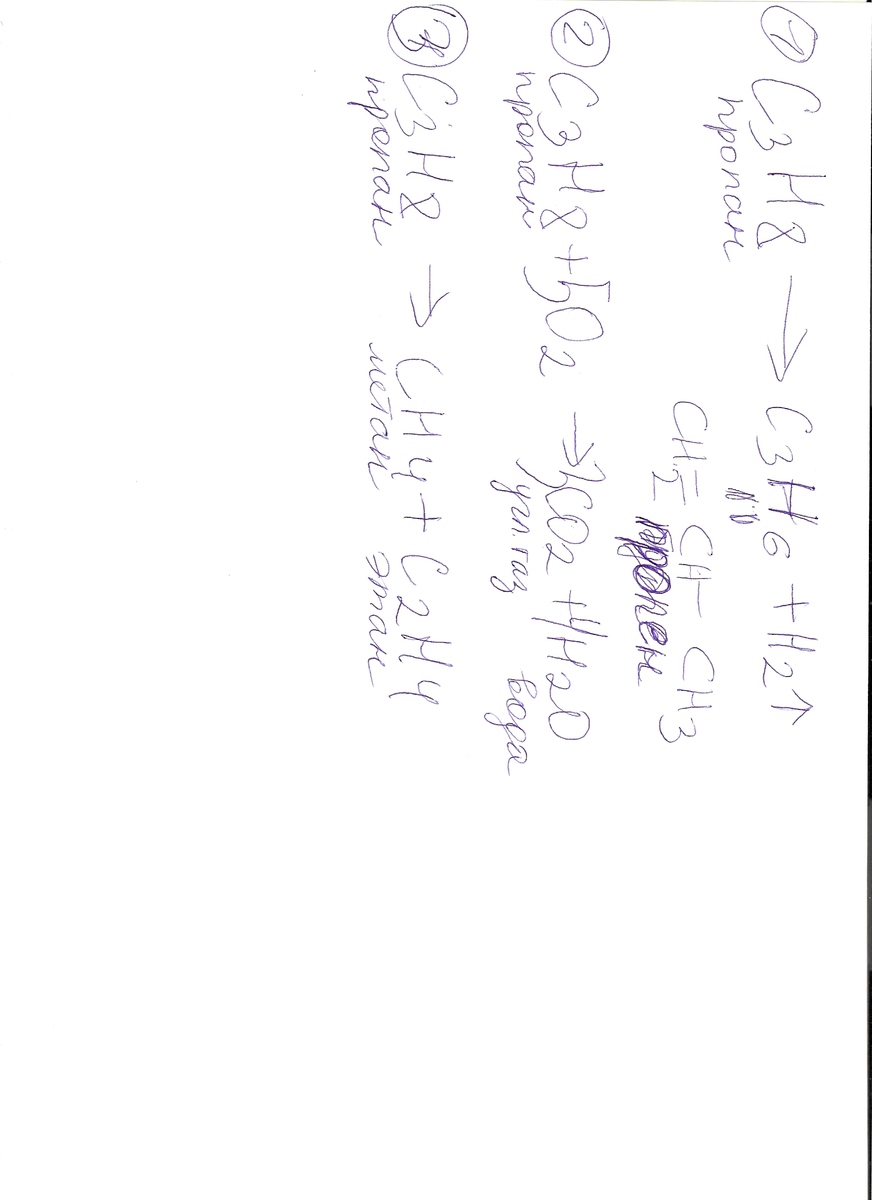 ① C3H8 → C3H6 + H2↑
пропан
CH2=CH-CH3
пропен
② C3H8 + 5O2 → 3CO2 + 4H2O
пропан угл.газ вода
③ C3H8 → CH4 + C2H4
пропан метан этан